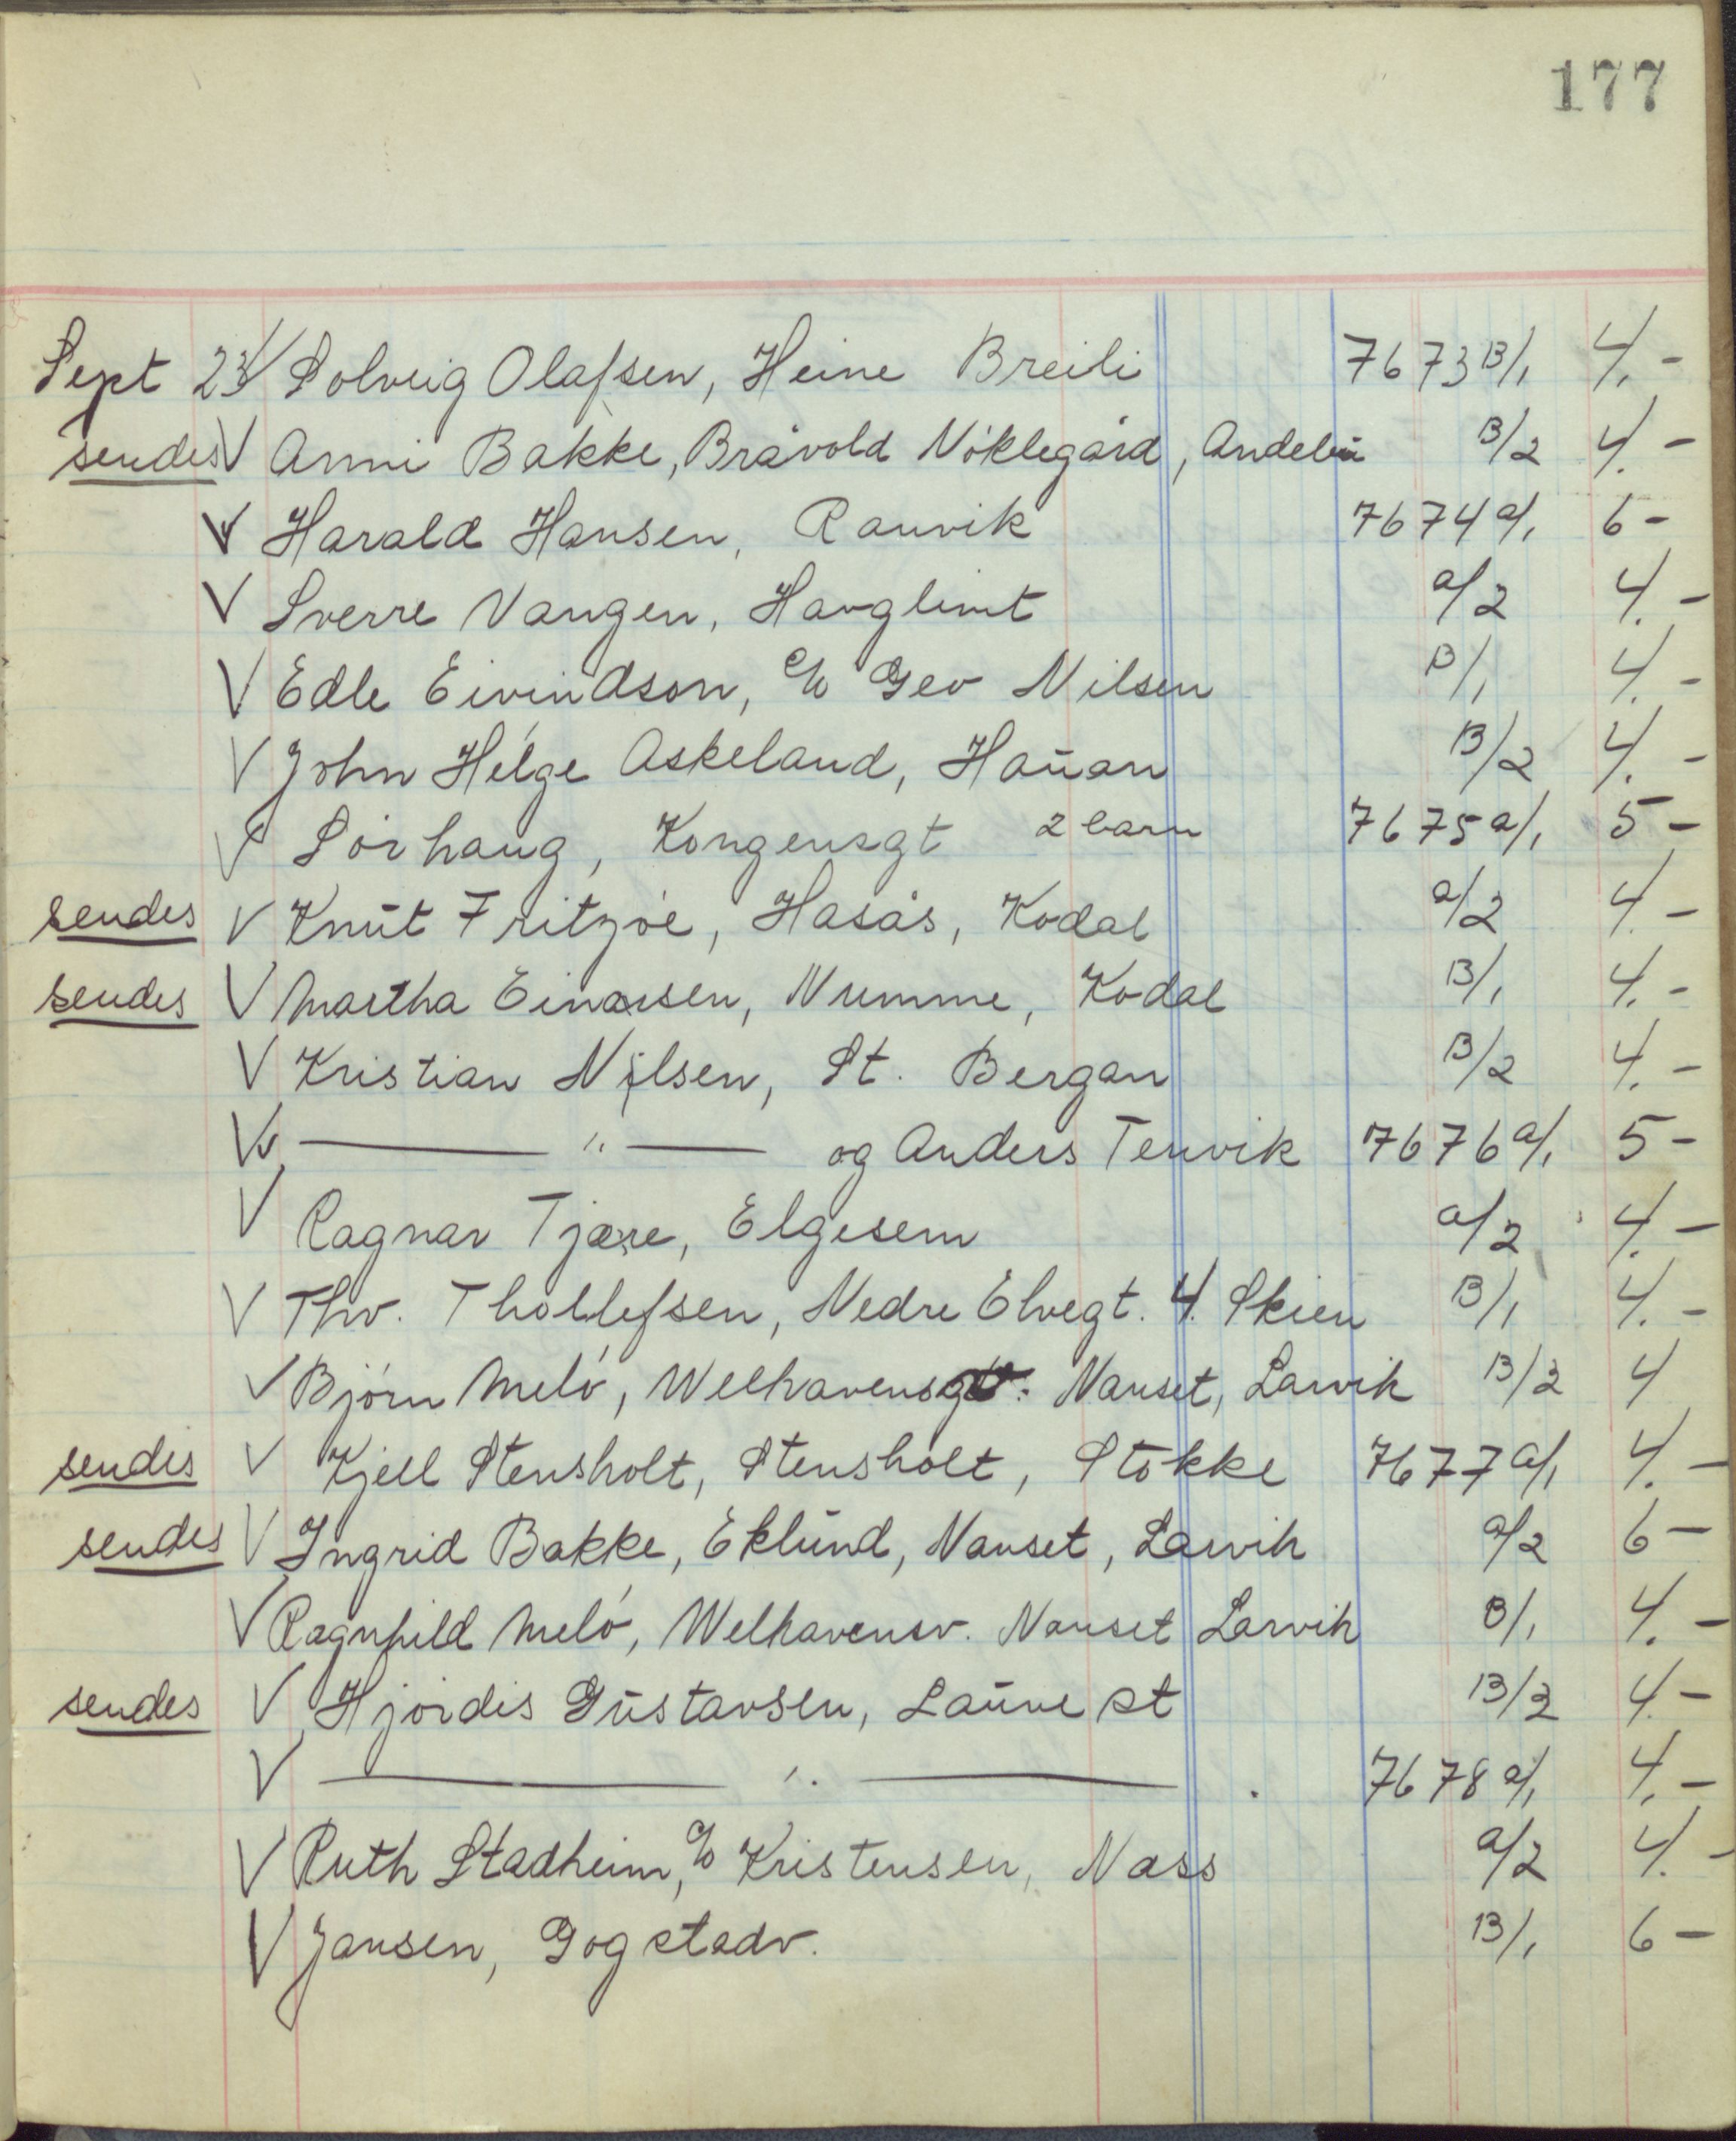 177
Sept 23 V Solveig Olafsen, Heine Breili 7673 B/1 4.-
sendes V Anni Bakke, Bråvold Nöklegård, Andebu B/2 4.-
V Harald Hansen, Ranvik 7674 a/1 6-
V Sverre Vangen, Havglimt a/2 4.-
V Edle Eivindson, c/o Geo Nilsen B/1 4.-
V John Helge Askeland, Haūan B/2 4.-
V Sörhaug, Kongensgt 2 barn 7675 a/1 5-
sendes V Knūt Fritzöe, Hasås, Kodal a/2 4.-
sendes V Martha Einarsen, Numme, Kodal B/1 4.-
V Kristian Nilsen, St. Bergan B/2 4.-
V —— " —— og Anders Tenvik 7676 a/1 5-
V Ragnar Tjære, Elgesem a/2 4.-
V Thv. Thollefsen, Nedre Elvegt. 4. Skien B/1 4.-
V Björn Melö, Welhavensgt. Nanset, Larvik B/2 4
sendes V Kjell Stensholt, Stensholt, Stokke 7677 a/1 4.-
sendes V Ingrid Bakke, Eklūnd, Nanset, Larvik a/2 6-
V Ragnhild Melö, Welhavensv. Nanset Larvik B/1 4.-
sendes V Hjördis Gūstavsen, Laūve st B/2 4-
V —— " —— . 7678 a/1 4.-
V Ruth Stadheim, c/o Kristensen, Nass a/2 4.-
V Jansen, Gogstadv. B/1 6-